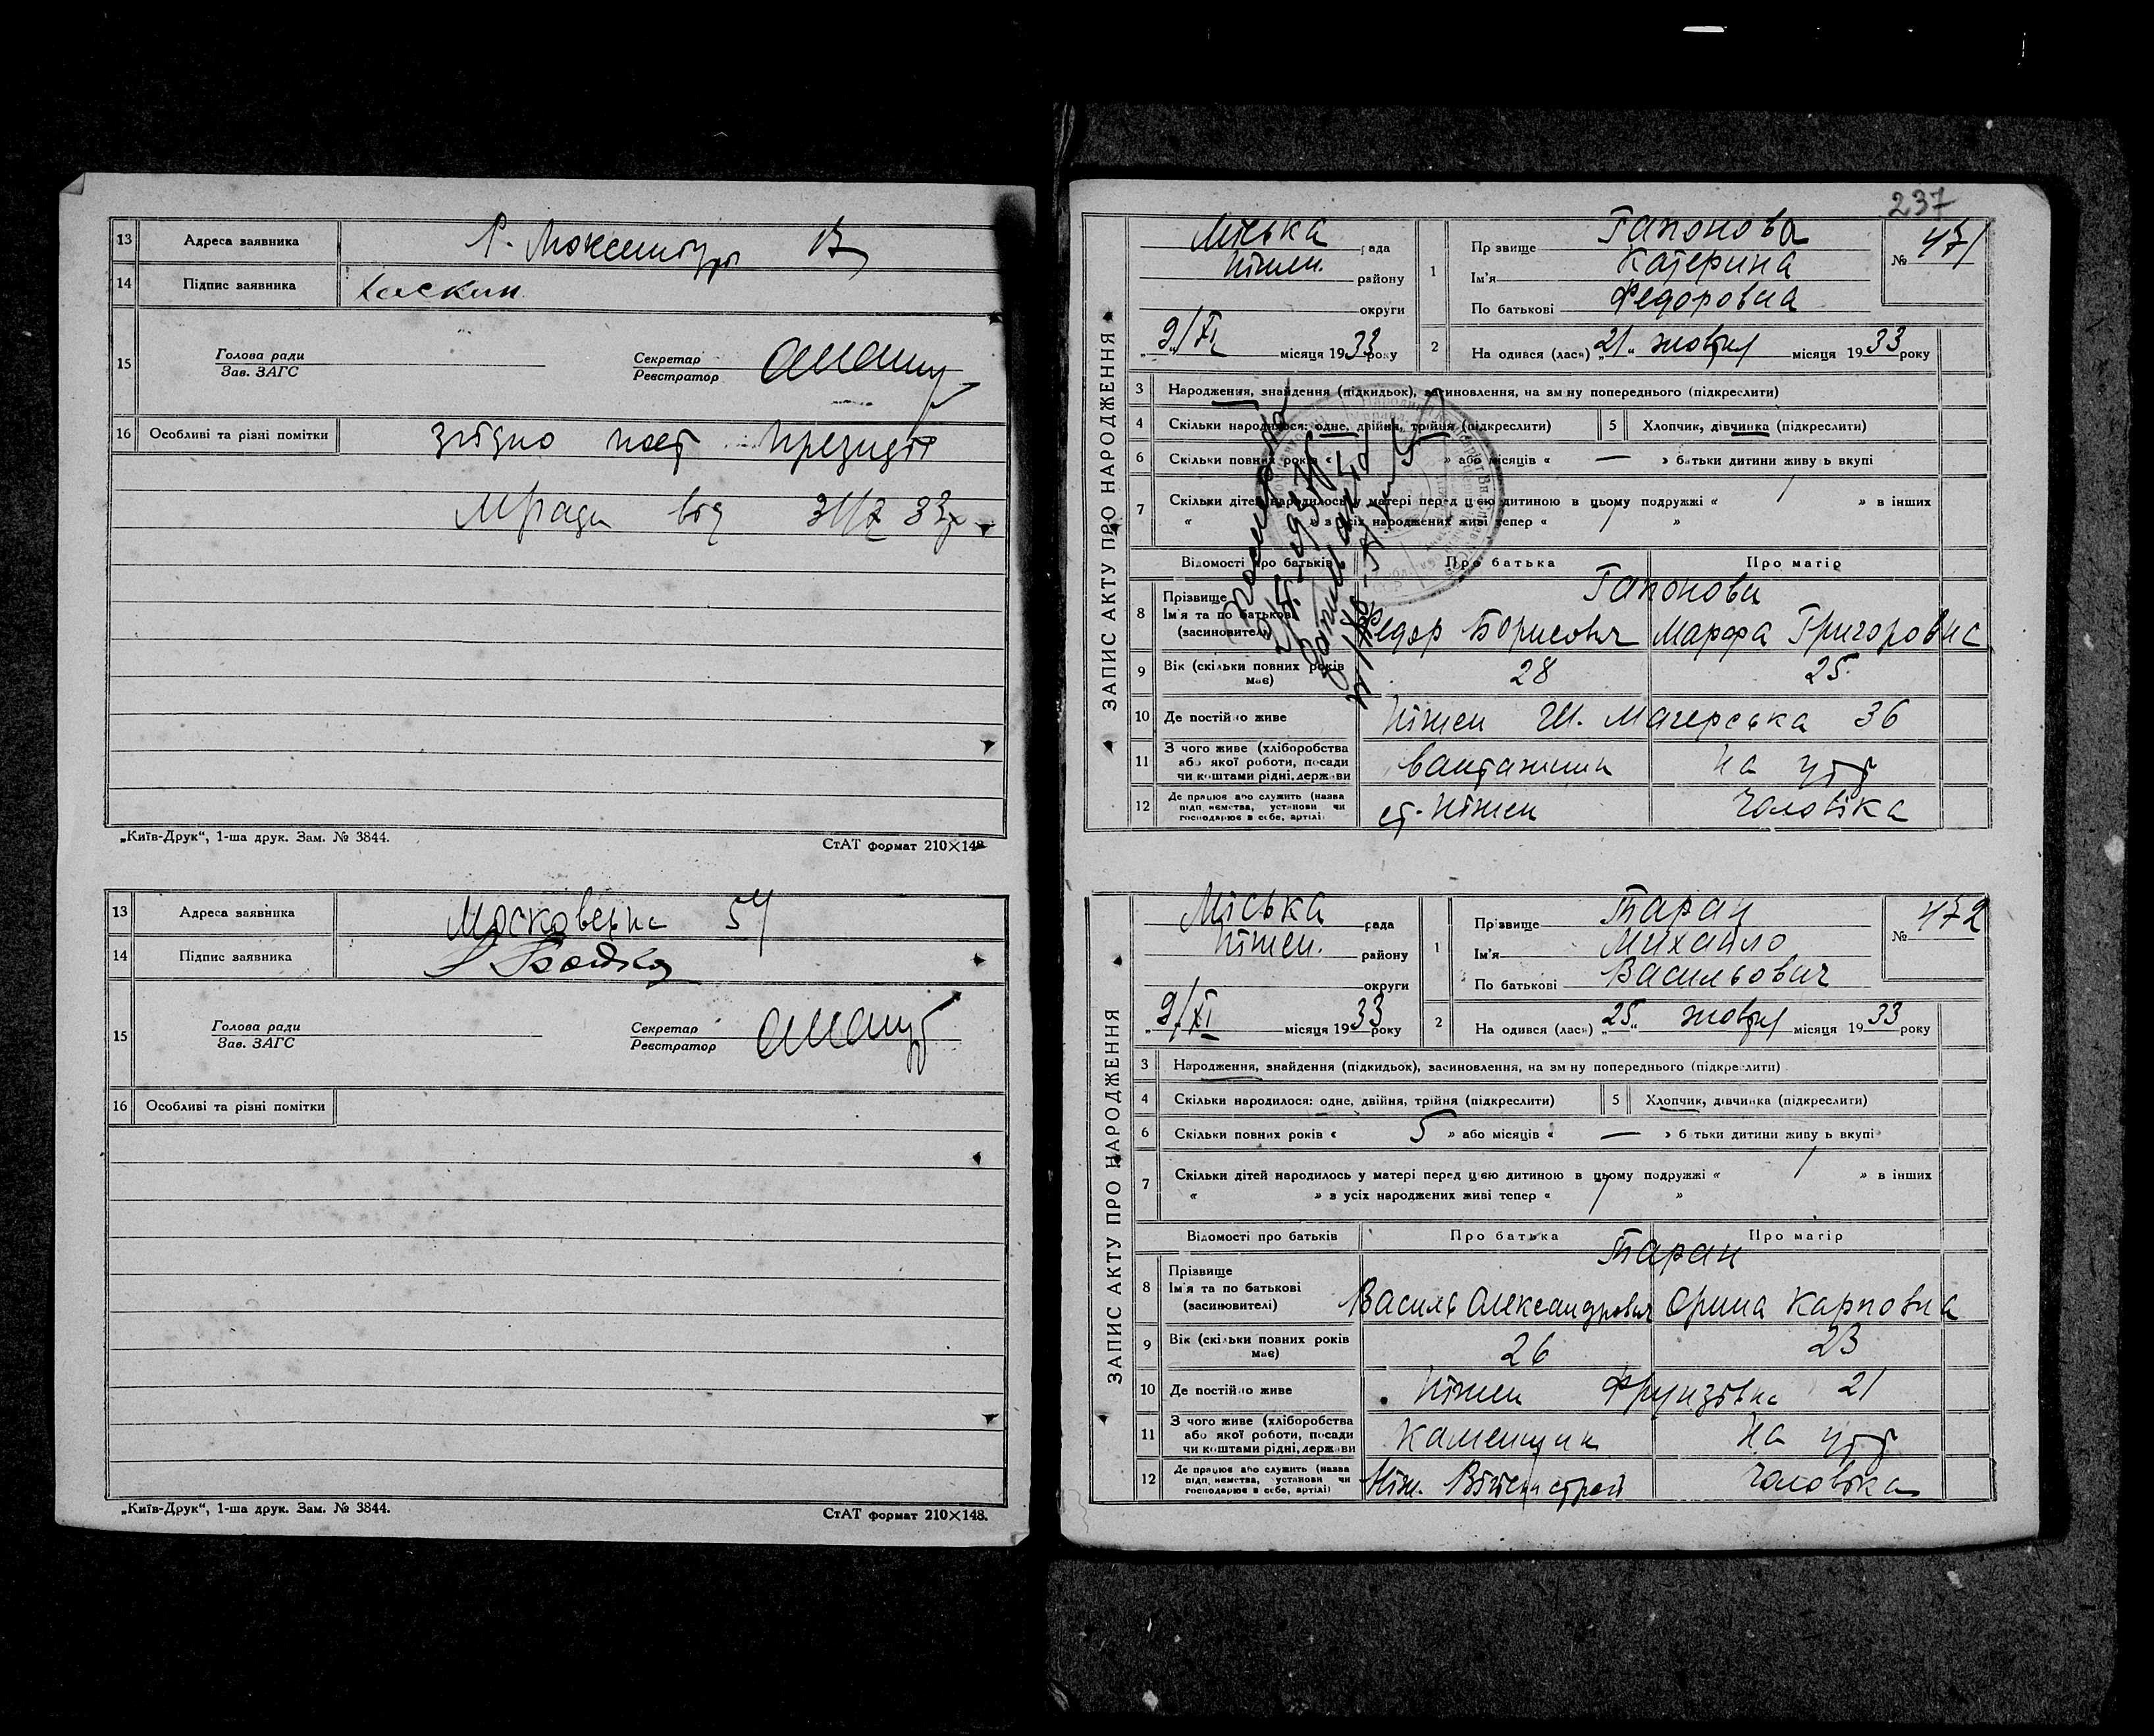 13 Адреса заявника Р. Люксембург 13
14 Підпис заявника
15 Голова ради
Зав. ЗАГС
Секретар
Реєстратор
16 Особливі та різні помітки згідно пост президії
Мради від 31/X 33р
„Київ-Друк“, 1-ша друк. Зам. № 3844. СтАТ формат 210×148.
13 Адреса заявника Московська 54
14 Підпис заявника
15 Голова ради
Зав. ЗАГС
Секретар
Реєстратор
16 Особливі та різні помітки
„Київ-Друк“, 1-ша друк. Зам. № 3844. СтАТ формат 210×148.
237
ЗАПИС АКТУ ПРО НАРОДЖЕННЯ
Міська рада
Ніжен. району
округи
„9/XI місяця 1933 року
1 Прізвище Гапонова
Ім'я Катерина
По батькові Федоровна
№ 471
2 На одився (лася) „21“ жовтня місяця 1933 року
3 Народження, знайдення (підкидьок), засиновлення, на зм ну попереднього (підкреслити)
4 Скільки народилося: одне, двійня, трійня (підкреслити) 5 Хлопчик, дівчинка (підкреслити)
6 Скільки повних років « » або місяців « — » батьки дитини живу ь вкупі
7 Скільки дітей народилось у матері перед цією дитиною в цьому подружжі « 1 » в інших
« » з усіх народжених живі тепер « 1 »
Відомості про батьків Про батька Про матір
8 Прізвище
Ім'я та по батькові
(засиновителі)
Гапонови
Федор Борисович Марфа Григоровна
9 Вік (скільки повних років має) 28 25
10 Де постійно живе Ніжен Ш. Магерська 36
11 З чого живе (хліборобства
або якої роботи, посади
чи коштами рідні, держави
вантажник На утр
12 Де працює або служить (назва
підп иємства, установи чи
господарює в себе, артілі)
ст. Ніжен чоловіка
ЗАПИС АКТУ ПРО НАРОДЖЕННЯ
Міська рада
Ніжен. району
округи
„9/XI місяця 1933 року
1 Прізвище Таран
Ім'я Михайло
По батькові Васильович
№ 472
2 На одився (лася) „25“ жовтня місяця 1933 року
3 Народження, знайдення (підкидьок), засиновлення, на зм ну попереднього (підкреслити)
4 Скільки народилося: одне, двійня, трійня (підкреслити) 5 Хлопчик, дівчинка (підкреслити)
6 Скільки повних років « 5 » або місяців « — » б тьки дитини живу ь вкупі
7 Скільки дітей народилось у матері перед цією дитиною в цьому подружжі « 1 » в інших
« » з усіх народжених живі тепер « 1 »
Відомості про батьків Про батька Про матір
8 Прізвище
Ім'я та по батькові
(засиновителі)
Таран
Василь Олександрович Орина Карповна
9 Вік (скільки повних років має) 26 23
10 Де постійно живе Ніжен Фрунзівка 21
11 З чого живе (хліборобства
або якої роботи, посади
чи коштами рідні, держави
Каменщик На утр
12 Де працює або служить (назва
підп иємства, установи чи
господарює в себе, артілі)
Ніж. чоловіка